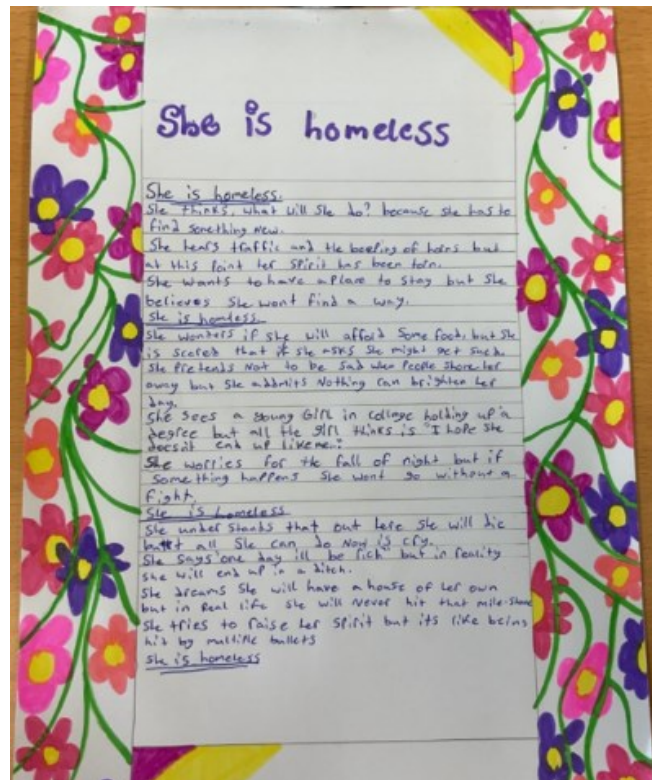 She is homeless
She is homeless.
She thinks, what will she do? because she has to
find something new.
She hears traffic and the beeping of horns but
at this point her spirit has been torn.
She wants to have a place to stay but she
believes she wont find a way.
She is homless
She wonders if she will afford some food, but she
is scared that if she asks she might get
She pretends not to be sad when people her
away but she addmits nothing can brighten her
day.
She sees a young Girl in college holding up a
degree but all the girl thinks is "I hope she
doesnt end up like me."
She worries for the fall of night but if
something happens she wont go without a
fight.
She is homeless
She understands that out here she will die
but all she can do now is cry.
She says "one day ill be rich" but in reality
she will end up in a ditch.
She dreams she will have a house of her own
but in real life she will never hit that
She tries to raise her spirit but its like being
hit by multiple bullets
She is homeless